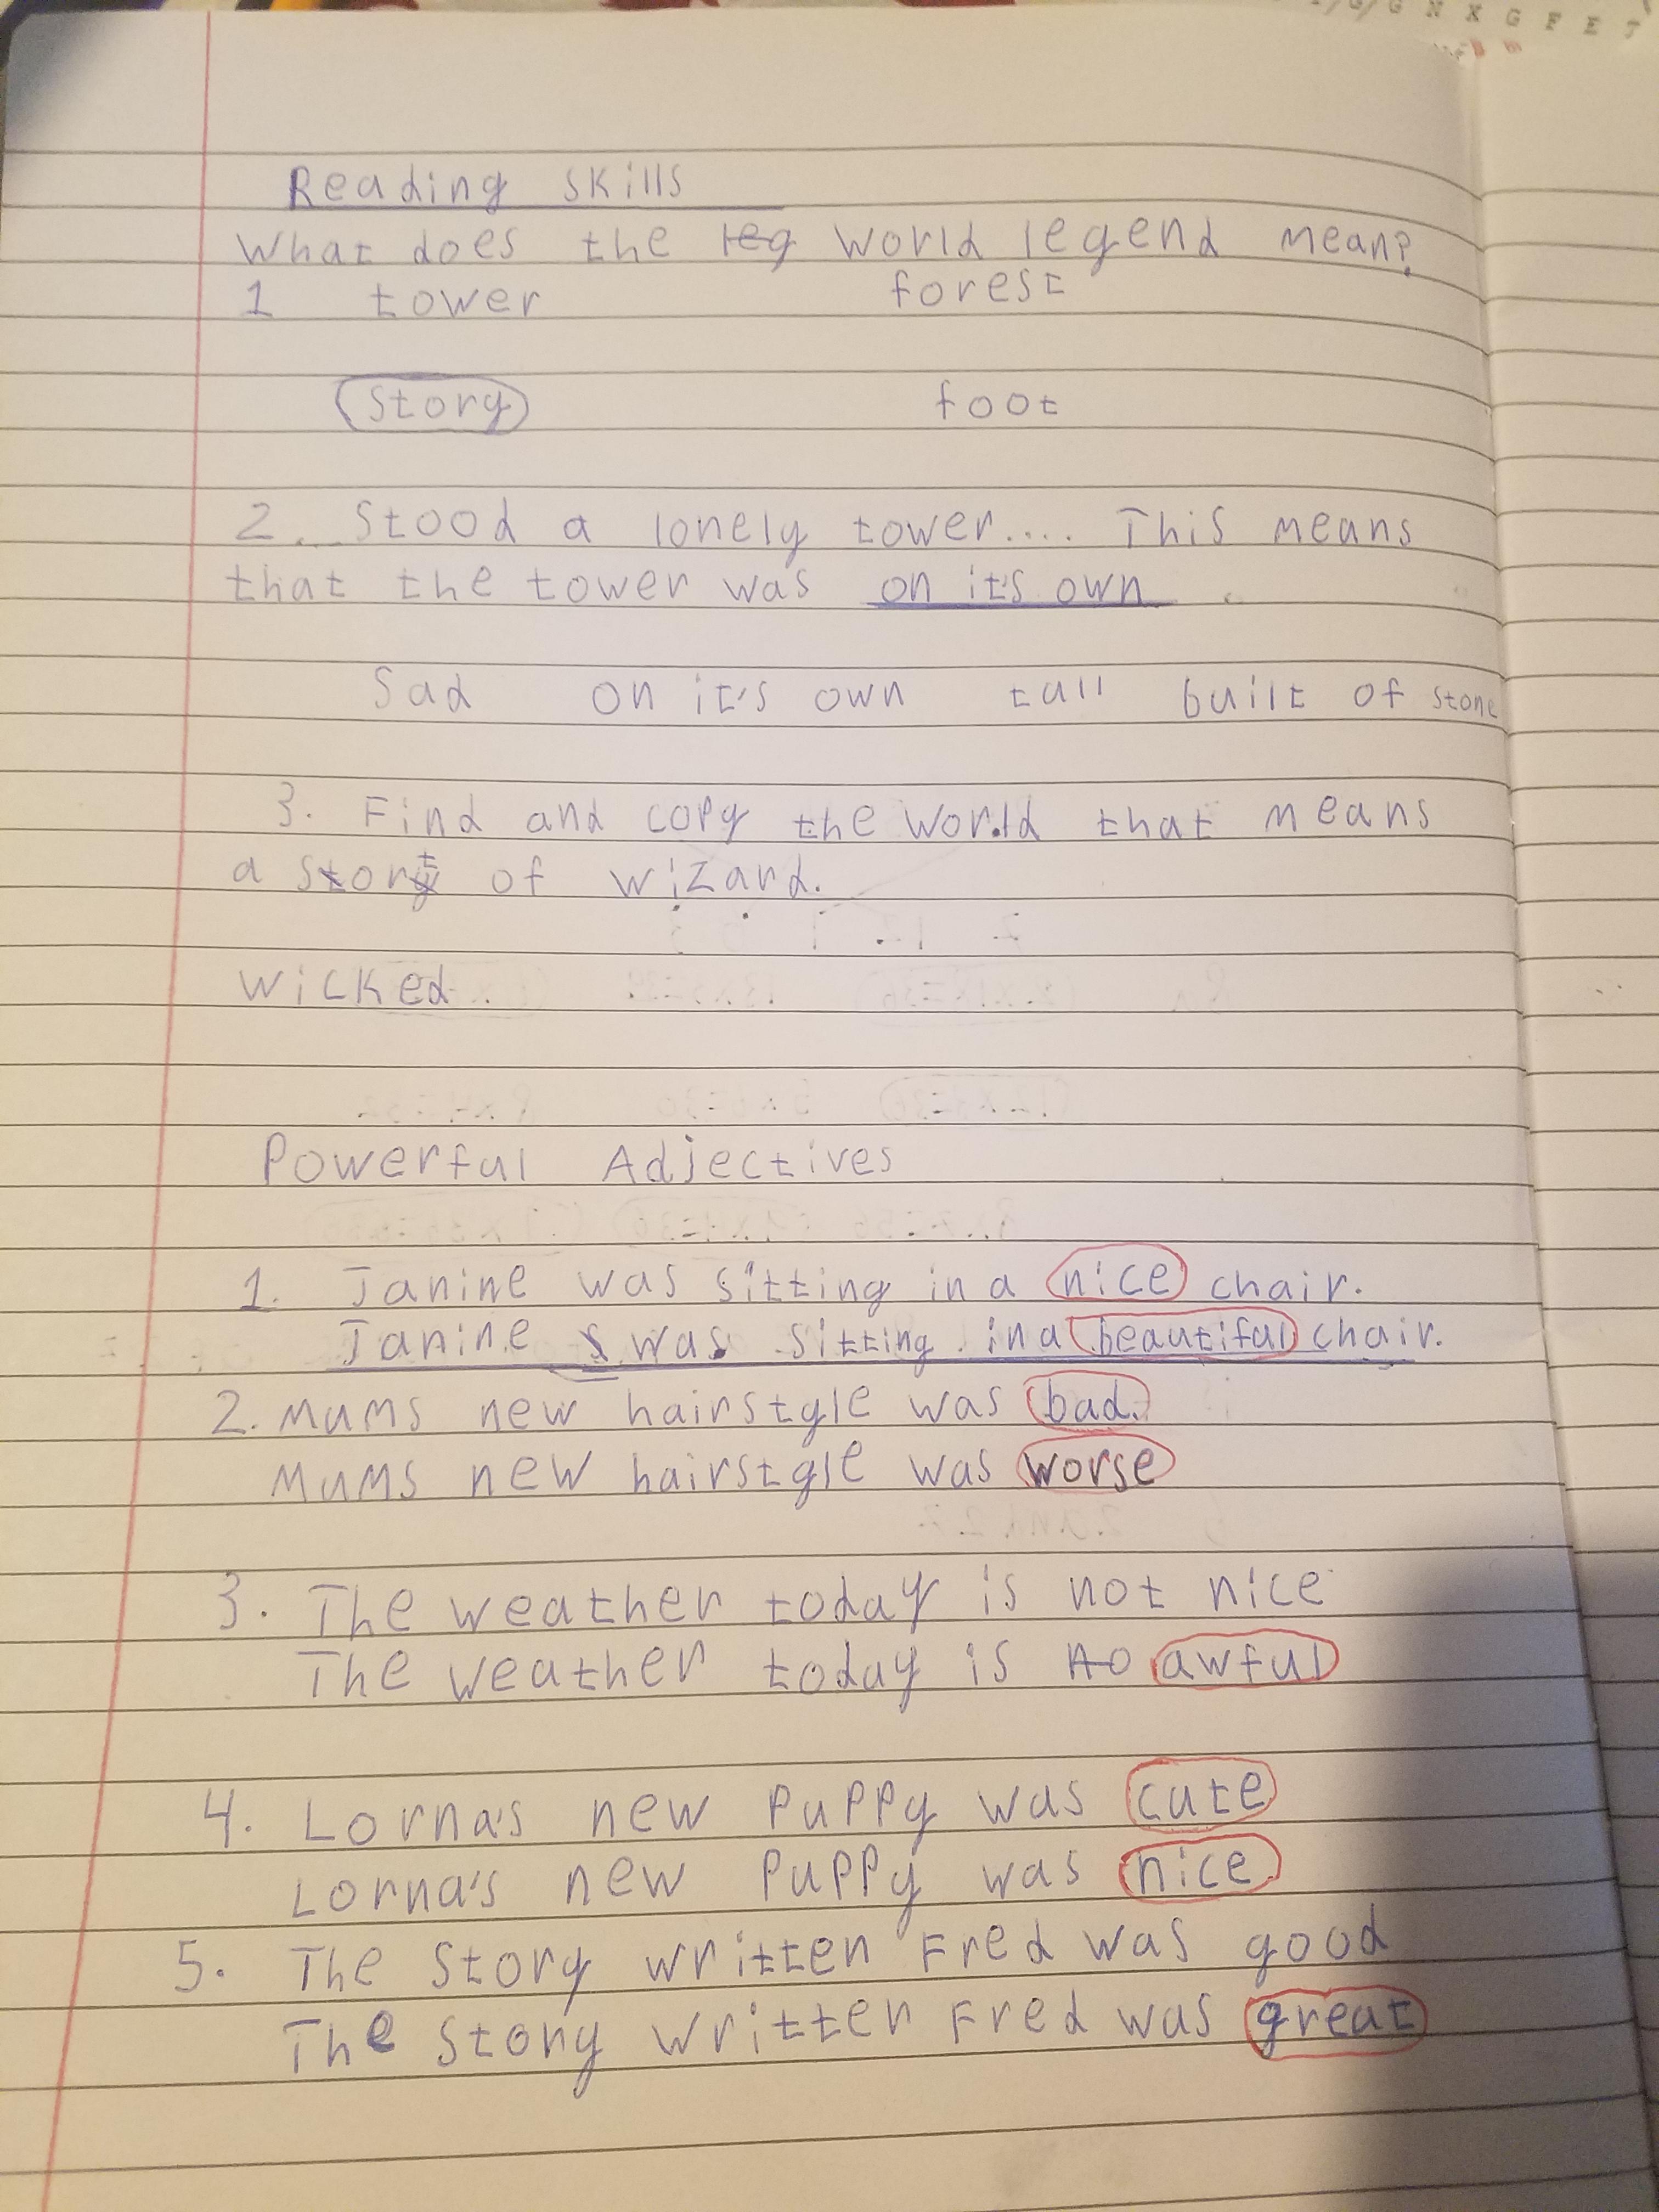 G N X G F E J
Reading skills
What does the leg World legend mean?
1 tower forest
Story foot
2... Stood a lonely tower.... This means
that the tower was on it's own.
Sad on it's own tall built of stone
3. Find and copy the World that means
a sort of wizard.
Wicked.
Powerful Adjectives
1. Janine was sitting in a nice chair.
Janine was sitting in a beautiful chair.
2. Mums new hairstyle was bad.
Mums new hairstyle was worse
3. The weather today is not nice
The weather today is no awful
4. Lorna's new puppy was cute
Lorna's new puppy was nice.
5. The Story written Fred was good
The Story written Fred was great